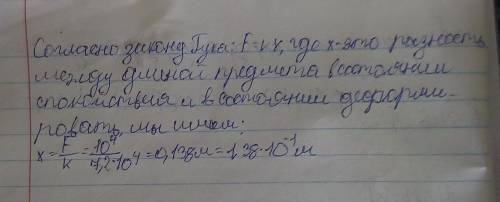 Согласно закону Гука: F=kx, где x-это разность
между длиной предмета в состоянии
спокойствия и в состоянии деформи-
ровать, мы имеем:
x=F/k=10⁴/7,2·10⁴=0,138м=1,38·10⁻¹м